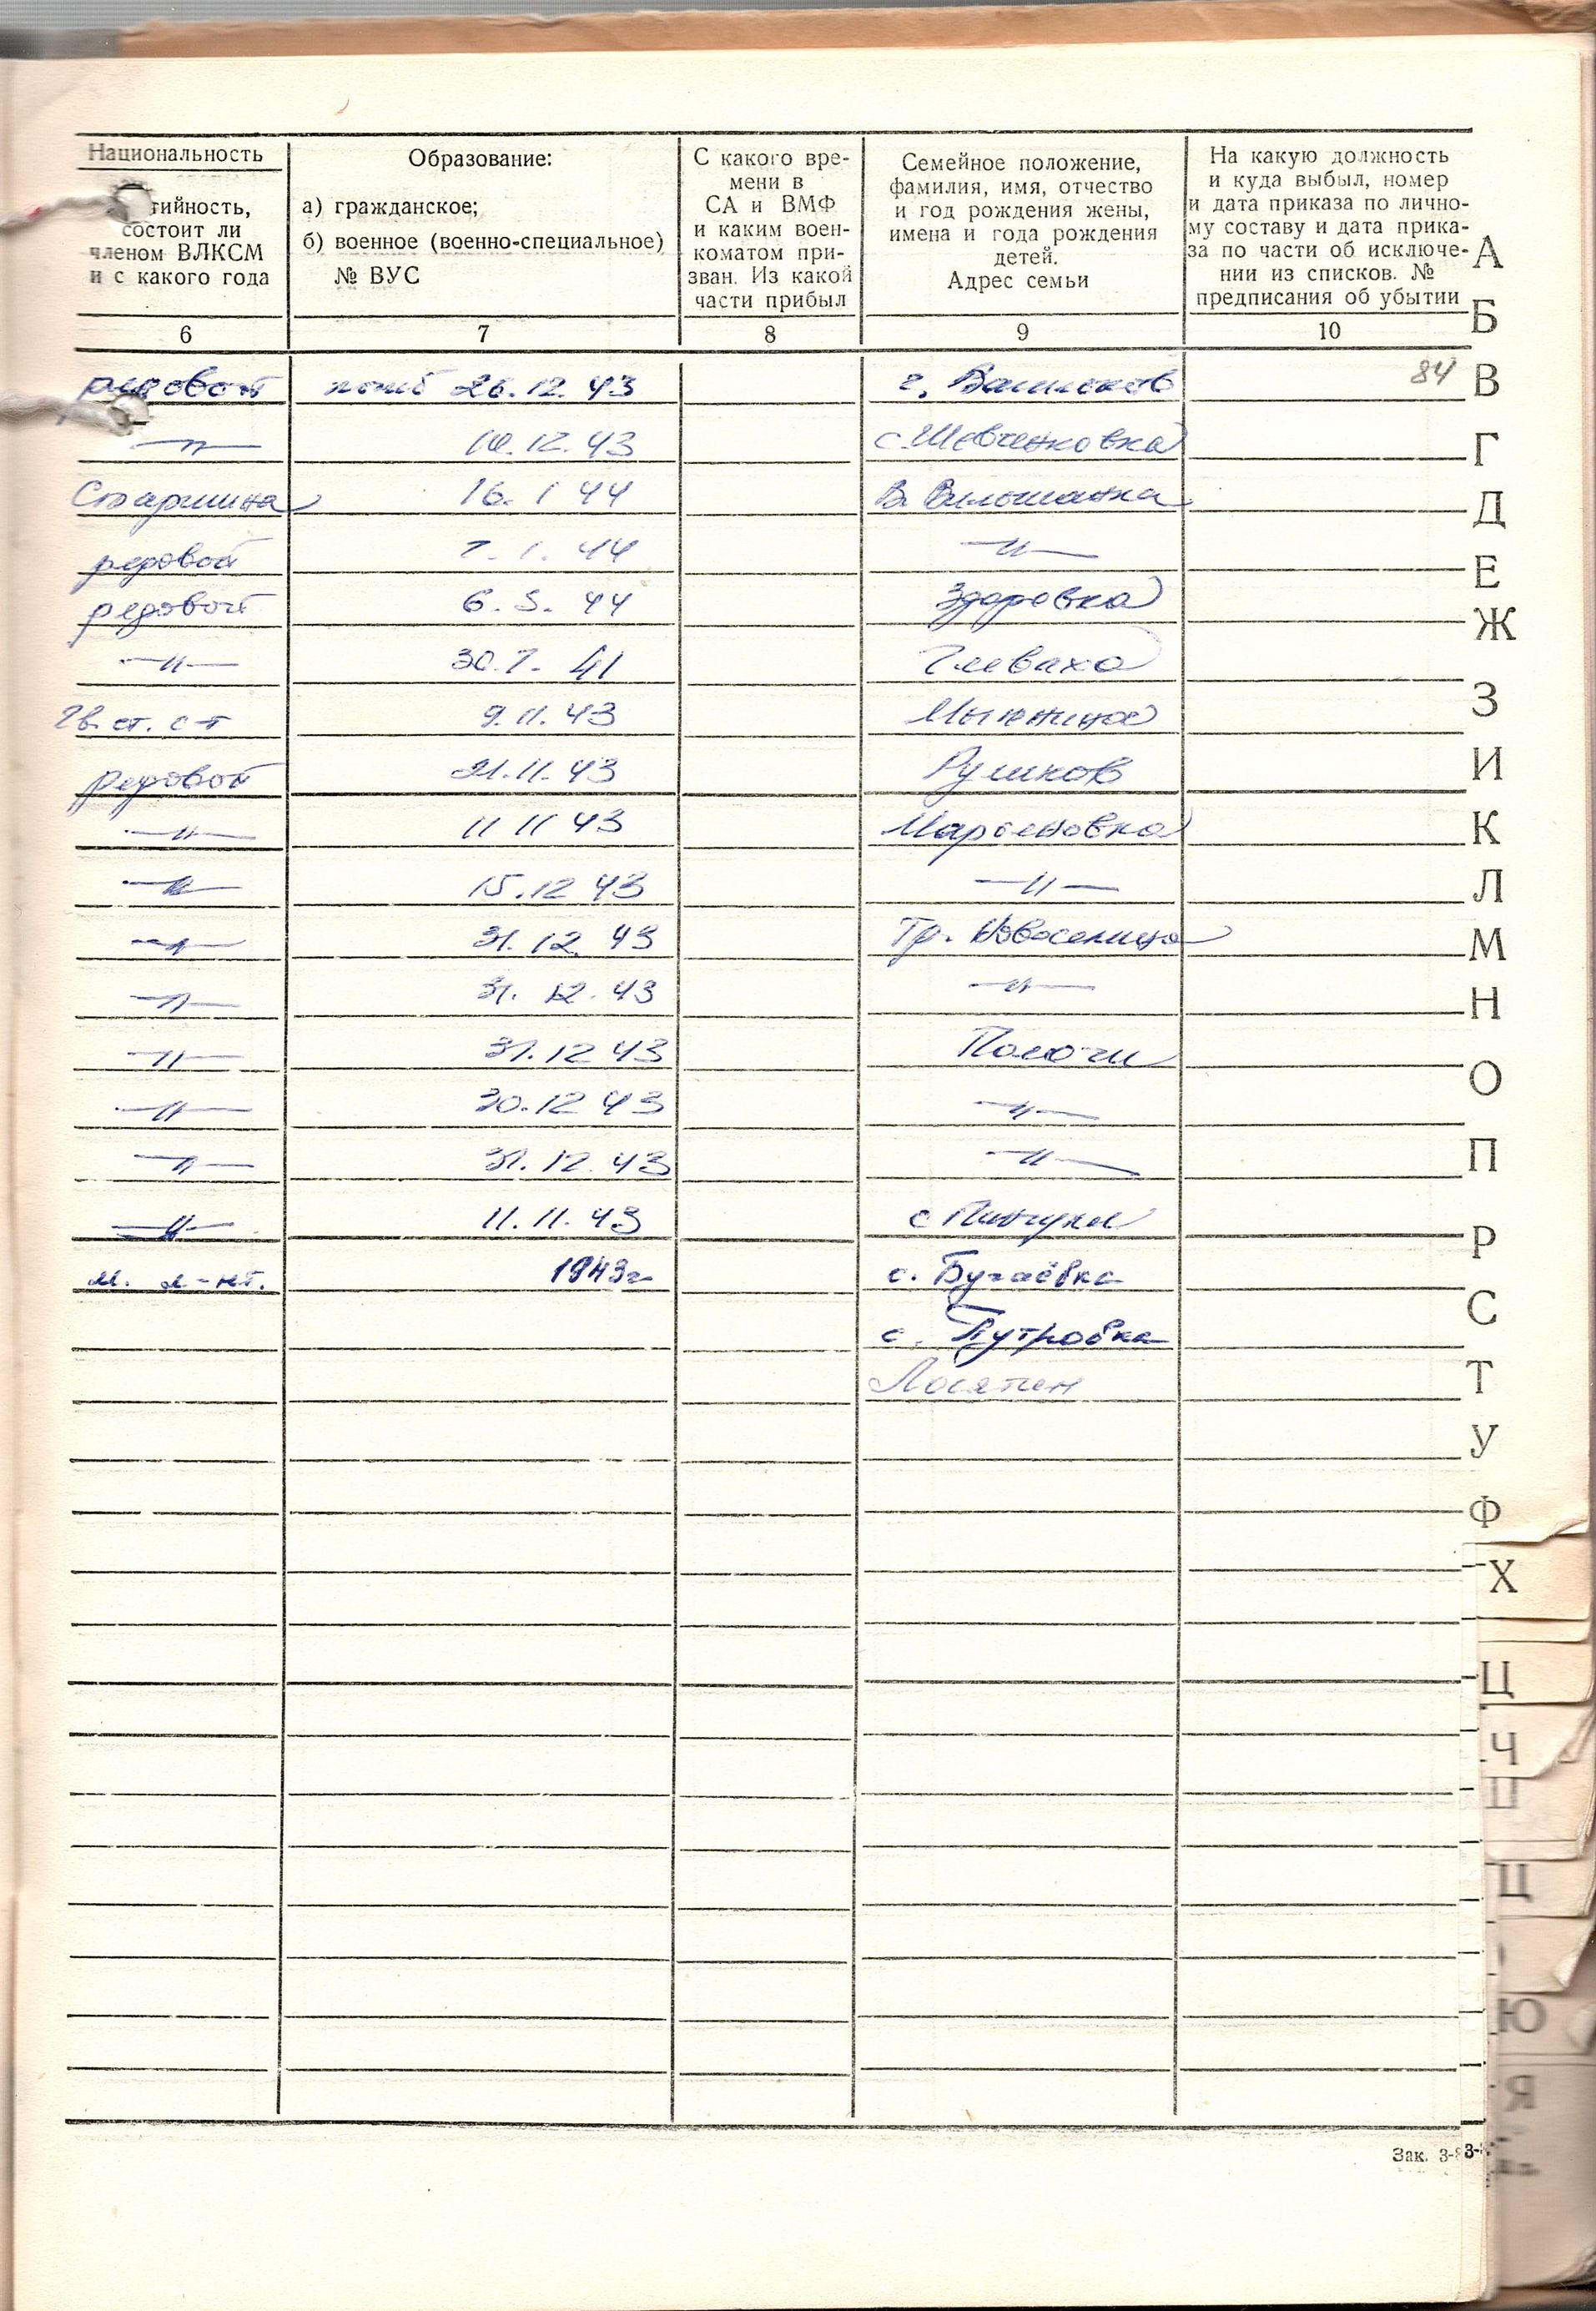 Национальность
тийность,
состоит ли
членом ВЛКСМ
и с какого года
Образование:
а) гражданское;
б) военное (военно-специальное)
№ ВУС
С какого вре-
мени в
СА и ВМФ
и каким воен-
коматом при-
зван. Из какой
части прибыл
Семейное положение,
фамилия, имя, отчество
и год рождения жены,
имена и года рождения
детей.
Адрес семьи
На какую должность
и куда выбыл, номер
и дата приказа по лично-
му составу и дата прика-
за по части об исключе-
нии из списков. №
предписания об убытии
6 7 8 9 10
рядовой 26.12.43 г. 84
—"— 10.12.43 с. Шевченковка
Старшина 16. 1 44 В. Вильшанка
рядовой 7. 1. 44 —"—
рядовой 6. 5. 44 Здоровка
—"— 30.7. 41 Глеваха
Гв. ст. с-т 9.11.43
рядовой 21.11.43
—"— 11 11 43 Марьяновка
—"— 15.12 43 —"—
—"— 31.12. 43 Гр. Новоселица
—"— 31. 12. 43 —"—
—"— 31.12 43 Пологи
—"— 30.12 43 —"—
—"— 31.12.43 —"—
—"— 11.11.43 с Пинчуки
м. л-нт. 1943г с. Бугаёвка
с. Путровка
Лосятин
А
Б
В
Г
Д
Е
Ж
З
И
К
Л
М
Н
О
П
Р
С
Т
У
Ф
Х
Ц
Ч
Ш
Щ
Ю
Я
Зак. 3-